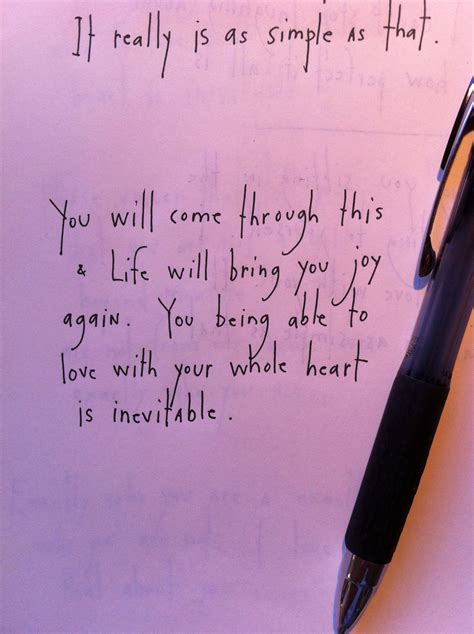 It really is as simple as that.
You will come through this
& Life will bring you joy
again. You being able to
love with your whole heart
is inevitable.